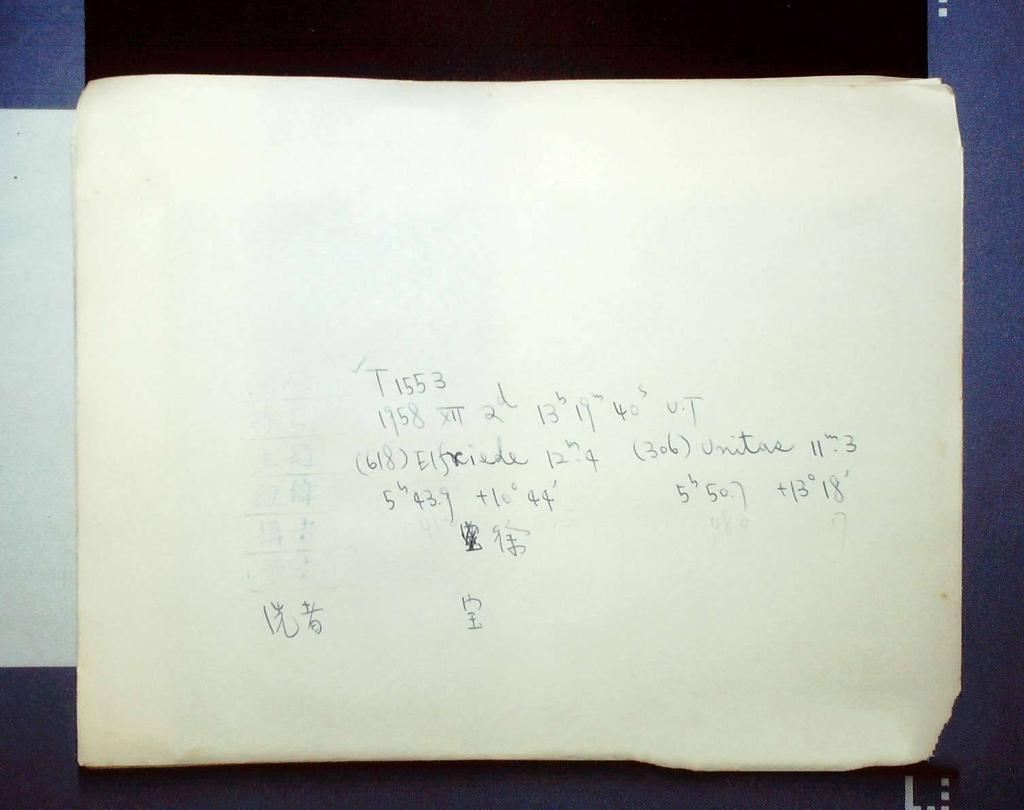 ✓ T 1553
1958 XII 2ᵈ 13ʰ 19ᵐ 40ˢ U.T
(618) Elfriede 12ᵐ.4 (306) Unitas 11ᵐ.3
5ʰ 43.9 +10° 44′ 5ʰ 50.7 +13° 18′
48.0 17
徐
洗者 宝